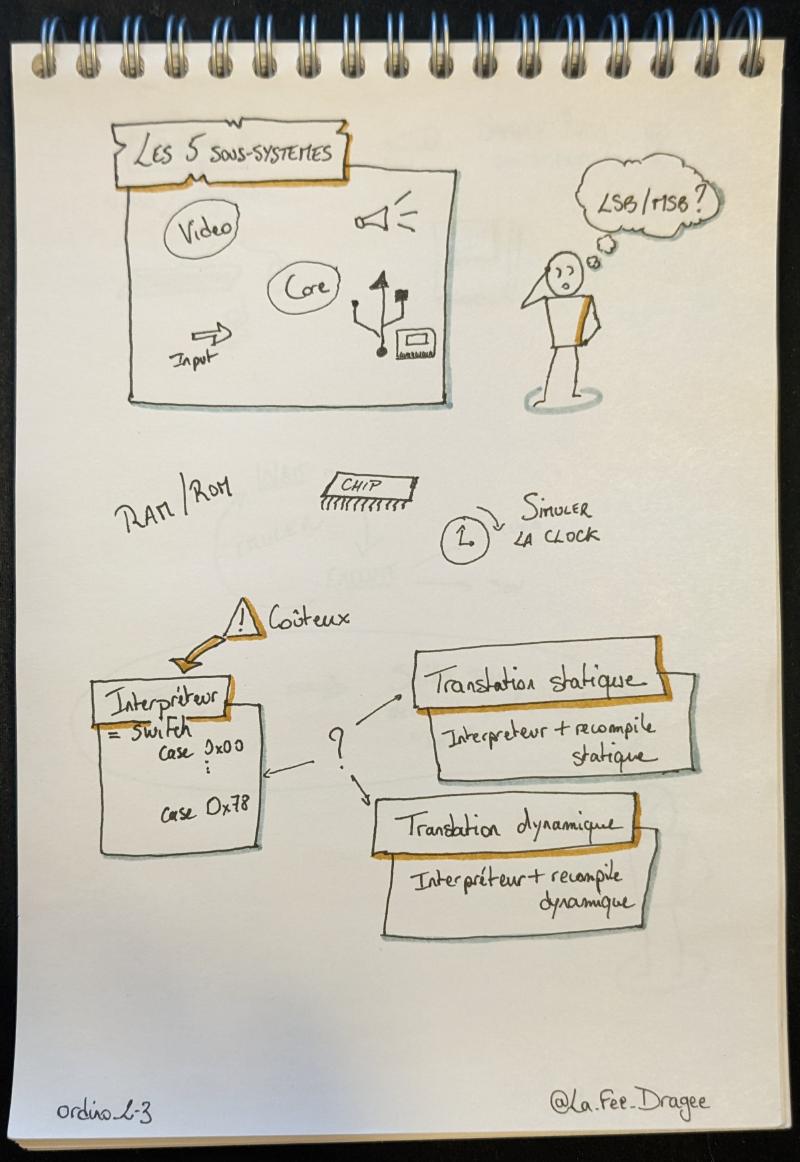 LES 5 SOUS-SYSTEMES
LSB/MSB?
Video
Core
Input
RAM/ROM
CHIP
SIMULER
LA CLOCK
! Coûteux
Interpréteur
= switch
case 0x00
⋮
case 0x78
?
Translation statique
Interpreteur + recompile
statique
Translation dynamique
Interpréteur + recompile
dynamique
@La_Fee_Dragee